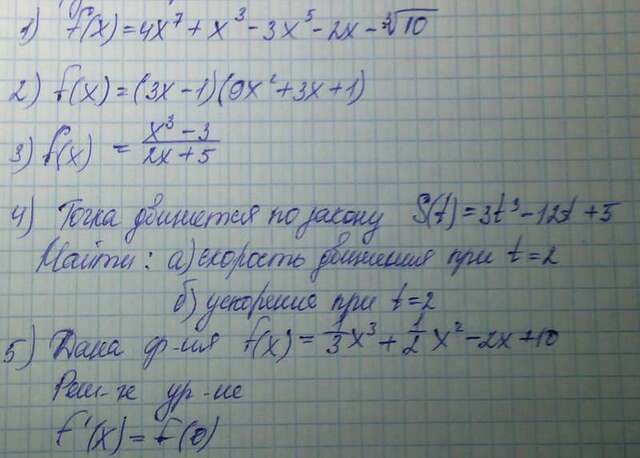 1) f(x)=4x⁷+x³-3x⁵-2x-∛10
2) f(x)=(3x-1)(9x²+3x+1)
3) f(x) = (x³-3)/(2x+5)
4) Точка движется по закону S(t)=3t³-12t+5
Найти: а) скорость движения при t=2
б) ускорение при t=2
5) Дана ф-ия f(x)=1/3x³+1/2x²-2x+10
Реш-те ур-ие
f'(x)=f(0)